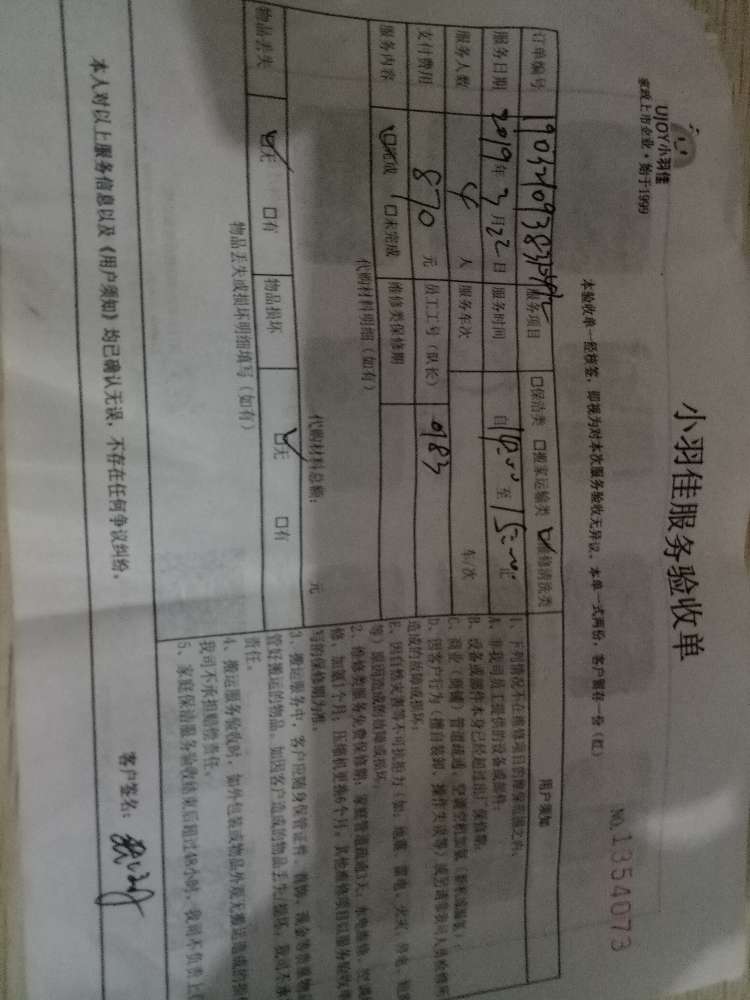 UJOY小羽佳
家政上市企业·始于1999
小羽佳服务验收单
本验收单一经核签，即视为对本次服务验收无异议。本单一式两份，客户留存一份（红）
NO.1354073
订单编号
服务项目 □保洁类 □搬家运输类 ☑维修清洗类
服务日期 2019年3月22日 服务时间 自14:00至15:00止
服务人数 4人 服务车次 车/次
支付费用 870元 员工工号（队长） 983
服务内容 ☑完成 □未完成 维修类保修期
代购材料明细（如有）
代购材料总额： 元
物品丢失 ☑无 □有 物品损坏 ☑无 □有
物品丢失或损坏明细填写（如有）
用户须知
1、下列情况不在维修项目的维保范围之内：
A、非我司员工提供的设备或部件；
B、设备或部件本身已经超过出厂保修期；
C、商业（店铺）管道疏通、空调空机加氨
D、因客户行为（擅自装卸、操作失误等）或另请非我司人员维修所
造成的故障或损坏；
E、因自然灾害等不可抗拒力（如：地震、雷电、火灾
等）原因造成的故障或损坏。
2、维修类服务免费保修期：家庭管道疏通3天，水电维修、空调
修、加氨1个月；压缩机更换6个月，其他维修项目以服务验收单
写的保修期为准。
3、搬运服务中，客户应随身保管证件、首饰、现金等贵重物品
管好搬运的物品。如因客户造成的物品丢失/损坏，我司不承
责任。
4、搬运服务验收时，如外包装或物品外观无搬运造成的损
我司不承担赔偿责任。
5、家庭保洁服务验收结束后超过48小时，我司不负责上
本人对以上服务信息以及《用户须知》均已确认无误，不存在任何争议纠纷。
客户签名：